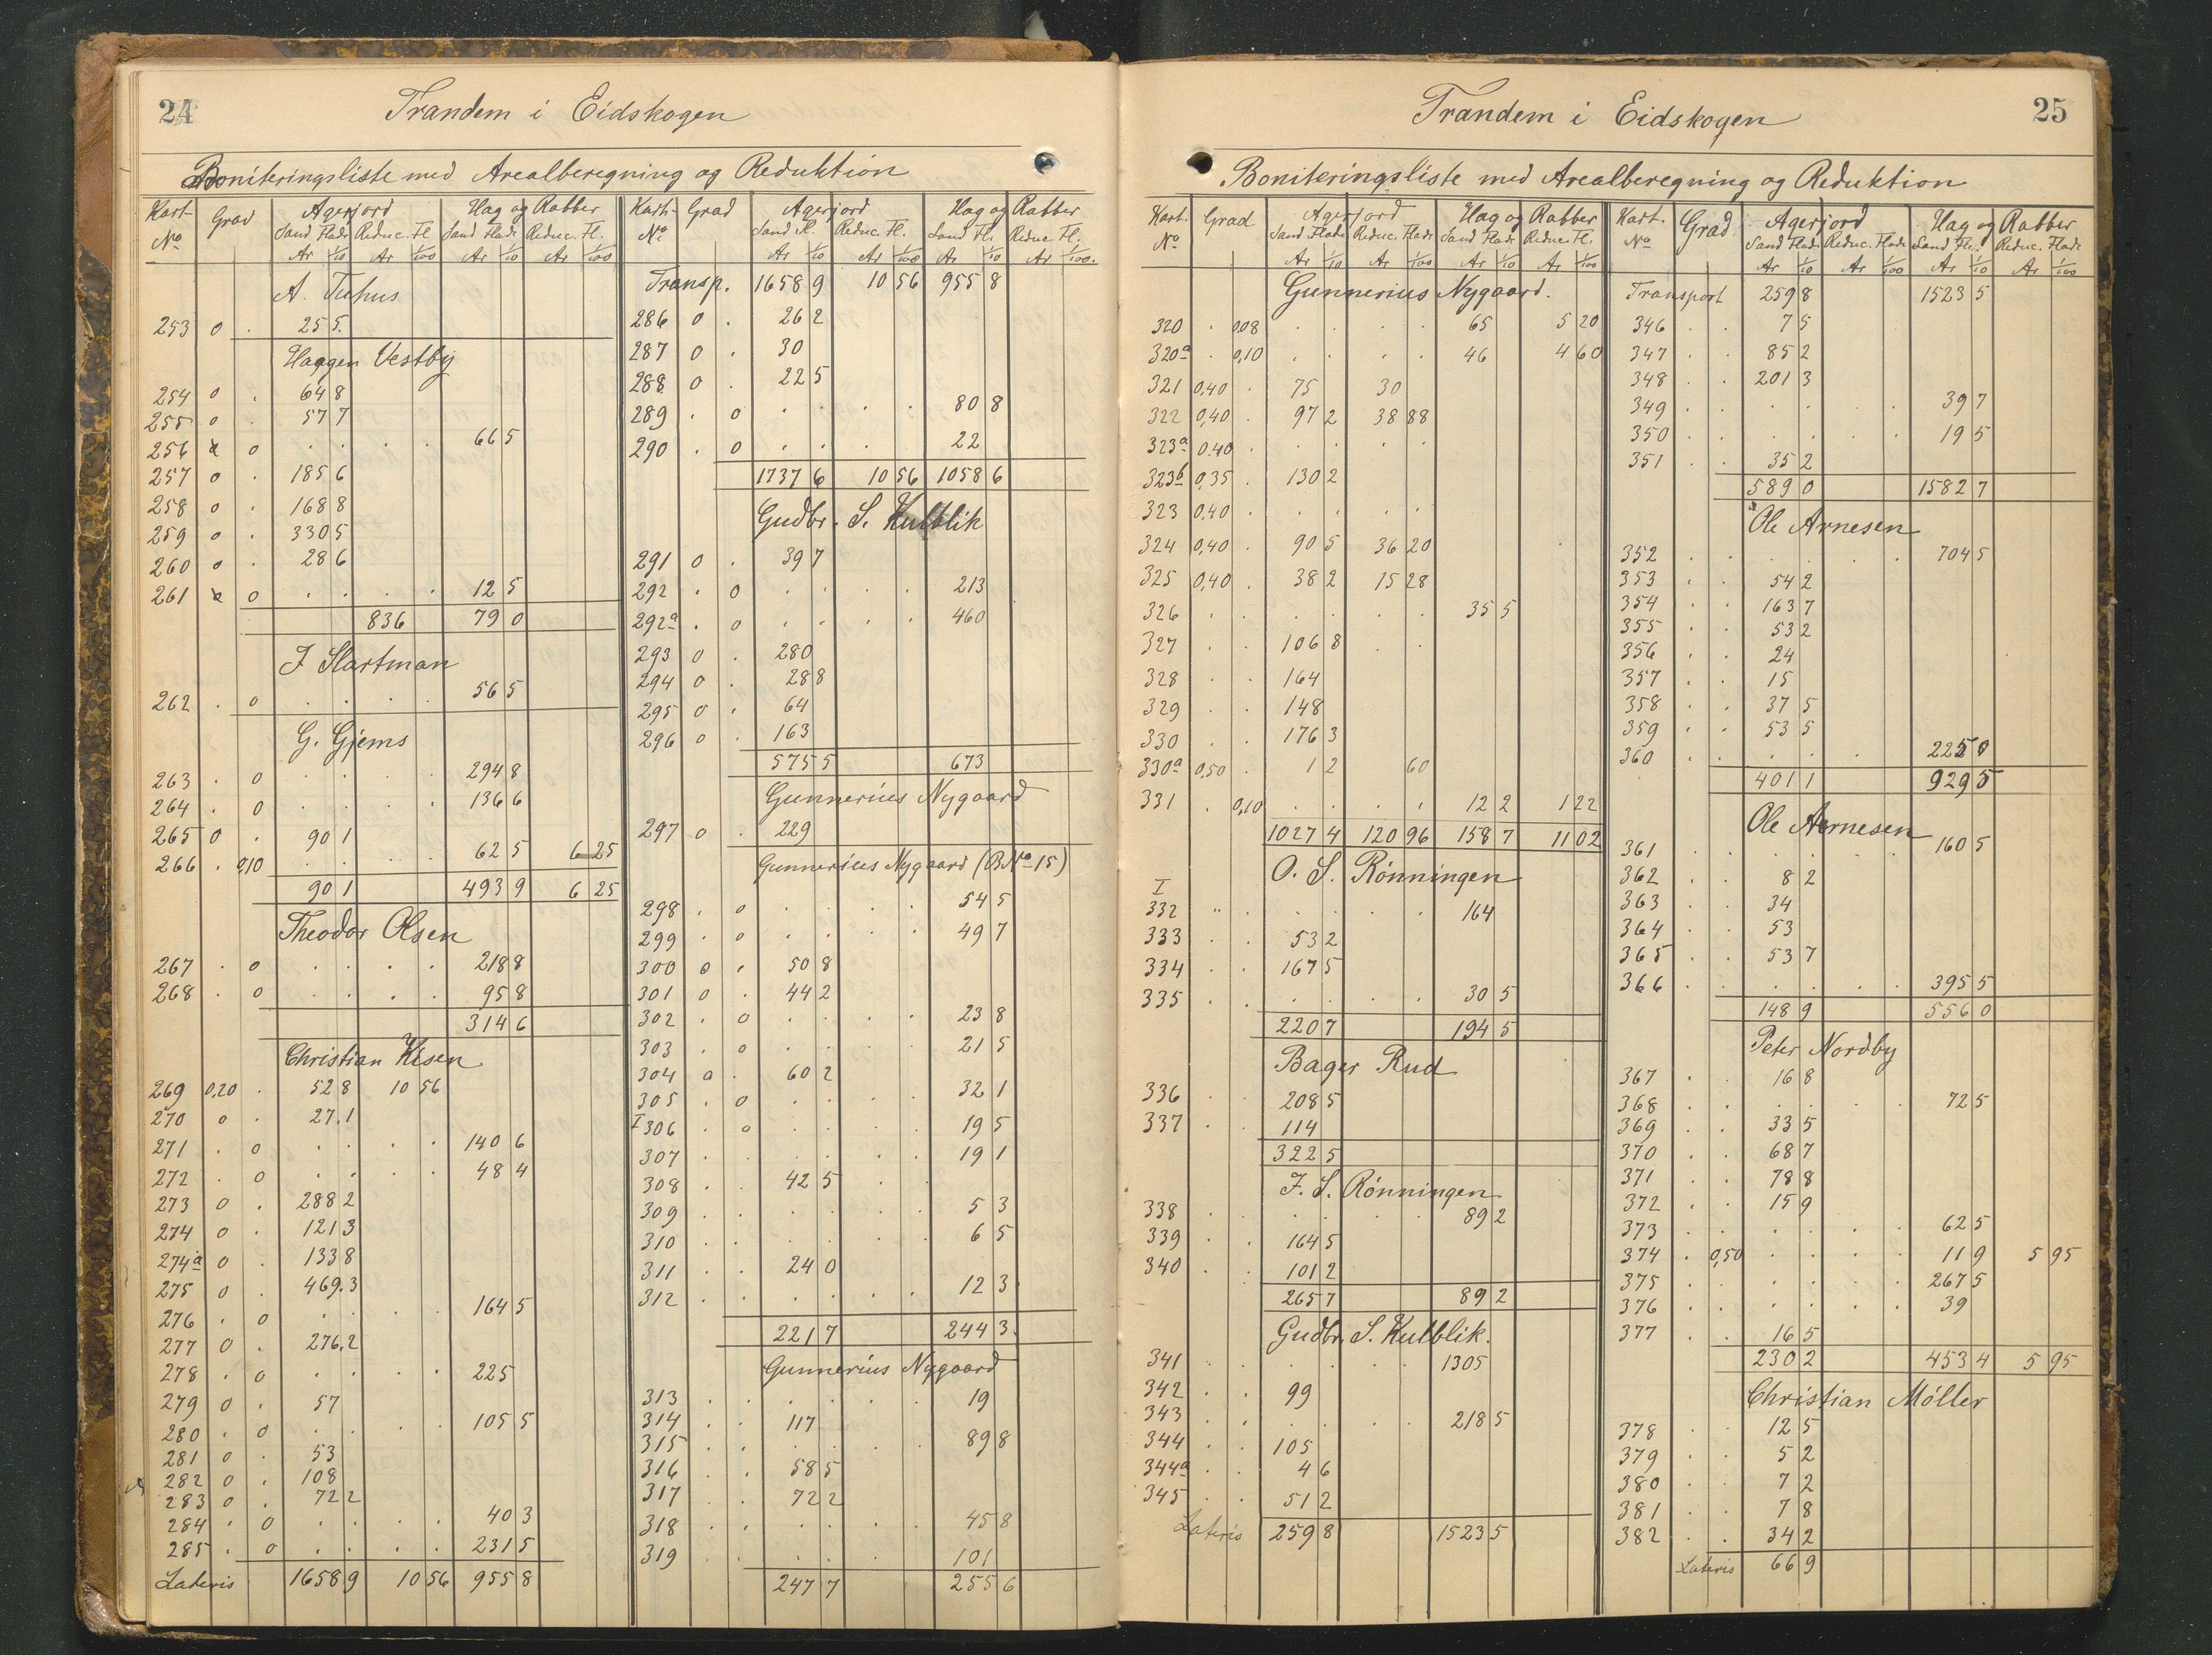 24
Trandem i Eidskogen
Boniteringsliste med Arealberegning og Reduktion
Kart- No Grad Agerjord Hag og Rabber
Sand Flade Reduc. Fl. Sand Flade Reduc. Fl.
Ar 1/10 Ar 1/100 Ar 1/10 Ar 1/100
A. Tuhus
253 0 . 25 5
Haagen Vestby
254 0 . 64 8
255 0 . 57 7
256 0 . . . . 66 5
257 0 . 185 6
258 0 . 168 8
259 0 . 330 5
260 0 . 28 6
261 0 . . . . 12 5
836 79 0
J Slartman
262 . 0 . . . . 56 5
G. Gjems
263 . 0 . . . . 294 8
264 . 0 . . . . 136 6
265 0 . 90 1
266 . 0,10 . . . . 62 5 6 25
90 1 493 9 6 25
Theodor Olsen
267 . 0 . . . . 218 8
268 . 0 . . . . 95 8
314 6
Christian Kisen
269 0,20 . 52 8 10 56
270 0 . 27.1
271 . 0 . . . . 140 6
272 . 0 . . . . 48 4
273 0 . 288 2
274 0 . 121 3
274a 0 . 133 8
275 0 . 469.3
276 . 0 . . . . 164 5
277 0 . 276.2
278 . 0 . . . . 225
279 0 . 57
280 . 0 . . . . 105 5
281 0 . 53
282 0 . 108
283 0 . 72 2
284 . 0 . . . . 40 3
285 . 0 . . . . 231 5
Lateris 1658 9 10 56 955 8
Kart- No Grad Agerjord Hag og Rabber
Sand Fl. Reduc. Fl. Sand Fl. Reduc Fl.
Ar 1/10 Ar 1/100 Ar 1/10 Ar 1/100.
Transp. 1658 9 10 56 955 8
286 0 . 26 2
287 0 . 30
288 0 . 22 5
289 . 0 . . . . 80 8
290 . 0 . . . 22
1737 6 10 56 1058 6
Gudbr. S. Kulblik
291 0 . 39 7
292 . 0 . . . . 213
292a . 0 . . . . 460
293 0 . 280
294 0 . 28 8
295 0 . 64
296 0 . 163
575 5 673
Gunnerius Nygaard
297 0 . 229
Gunnerius Nygaard (B.No 15)
298 . 0 . . . . 54 5
299 . 0 . . . . 49 7
300 0 . 50 8
301 0 . 44 2
302 . 0 . . . . 23 8
303 . 0 . . . . 21 5
304 0 . 60 2
305 . 0 . . . . 32 1
I 306 . 0 . . . . 19 5
307 . . . . . . 19 1
308 . . 42 5
309 . . . . . . 5 3
310 . . . . . . 6 5
311 . . 24 0
312 . . . . . . 12 3
221 7 244 3.
Gunnerius Nygaard
313 . . . . . . 19
314 . . 117
315 . . . . . . 89 8
316 . . 58 5
317 . . 72 2
318 . . . . . . 45 8
319 . . . . . 101
247 7 255 6
25
Trandem i Eidskogen
Boniteringsliste med Arealberegning og Reduktion
Kart. No Grad Agerjord Hag og Rabber
Sand Flade Reduc. Flade Sand Flade Reduc Fl.
Ar 1/10 Ar 1/100 Ar 1/10 Ar 1/100
Gunnerius Nygaard.
320 . 0,08 . . . . 65 5 20
320a . 0,10 . . . . 46 4 60
321 0,40 . 75 30
322 0,40 . 97 2 38 88
323a 0.40 . . . . .
323b 0,35 . 130 2
323 0,40 . . . . .
324 0,40 . 90 5 36 20
325 0,40 . 38 2 15 28
326 . . . . . . 35 5
327 . . 106 8 . .
328 . . 164
329 . . 148
330 . . 176 3
330a 0,50 . 1 2 60
331 . 0,10 . . . . 12 2 1 22
1027 4 120 96 158 7 11 02
O. S. Rönningen
I
332 " . . . . . 164
333 . . 53 2
334 . . 167 5
335 . . . . . . 30 5
220 7 194 5
Bager Rud
336 . . 208 5
337 . . 114
322 5
J. S. Rönningen
338 . . . . . . 89 2
339 . . 164 5
340 . . 101 2
265 7 89 2
Gudbr. S. Kulblik.
341 . . . . . . 1305
342 . . 99
343 . . . . . . 218 5
344 . . 105
344a . . 4 6
345 . . 51 2
Lateris 259 8 1523 5
Kart. No Grad Agerjord Hag og Rabber
Sand Flade Reduc. Flade Sand Fl. Reduc. Flade
Ar 1/10 Ar 1/100 Ar 1/10 Ar 1/100
Transport 259 8 1523 5
346 . . 7 5
347 . . 85 2
348 . . 201 3
349 . . . . . . 39 7
350 . . . . . . 19 5
351 . . 35 2
589 0 1582 7
Ole Arnesen
352 . . . . . . 704 5
353 . . 54 2
354 . . 163 7
355 . . 53 2
356 . . 24
357 . . 15
358 . . 37 5
359 . . 53 5
360 . . . . . 225 0
401 1 929 5
Ole Arnesen
361 . . . . . . 160 5
362 . . 8 2
363 . . 34
364 . . 53
365 . . 53 7
366 . . . . . . 395 5
148 9 556 0
Peter Nordby
367 . . 16 8
368 . . . . . . 72 5
369 . . 33 5
370 . . 68 7
371 . . 78 8
372 . . 15 9
373 . . . . . . 62 5
374 . 0,50 . . . . 11 9 5 95
375 . . . . . . 267 5
376 . . . . . . 39
377 . . 16 5
230 2 453 4 5 95
Christian Möller
378 . . 12 5
379 . . 5 2
380 . . 7 2
381 . . 7 8
382 . . 34 2
Lateris 66 9